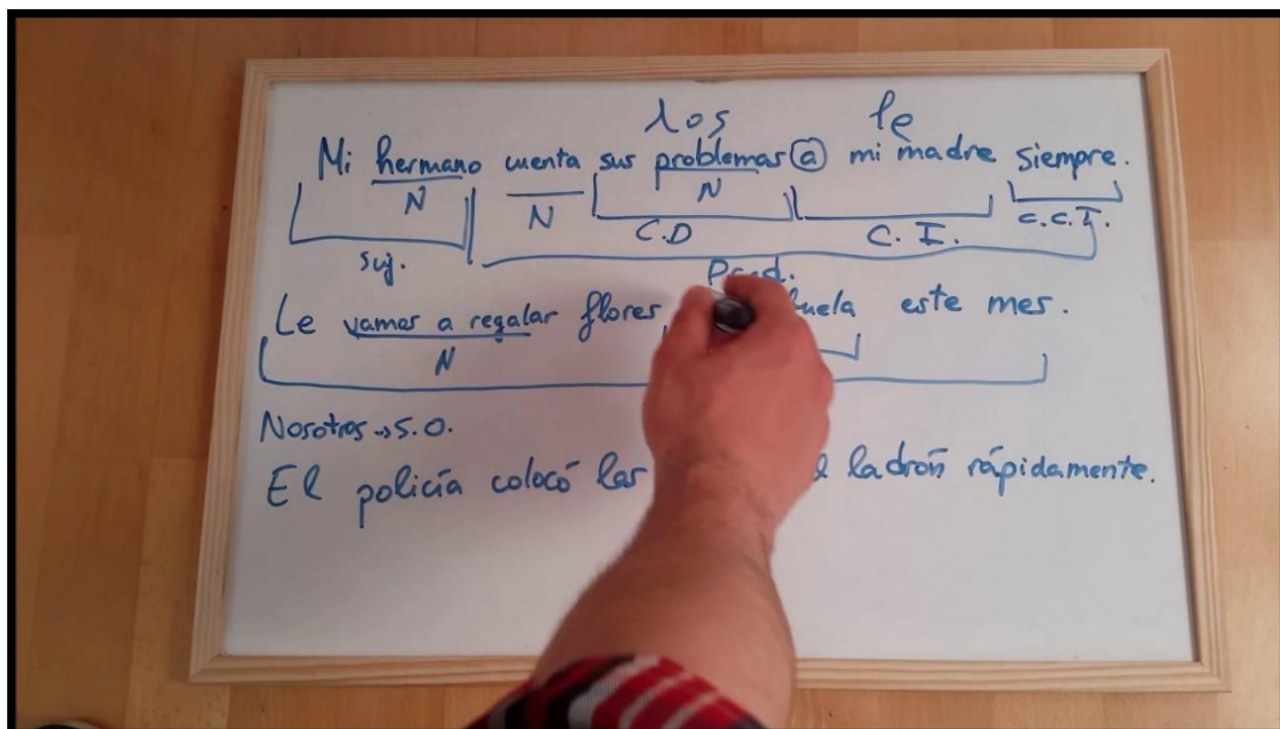 los le
Mi hermano cuenta sus problemas a mi madre siempre.
N N N
C.D C. I. C.C.T.
Suj.
Pred.
Le vamos a regalar flores este mes.
N
Nosotros → S.O.
El policía colocó las ladrón rápidamente.